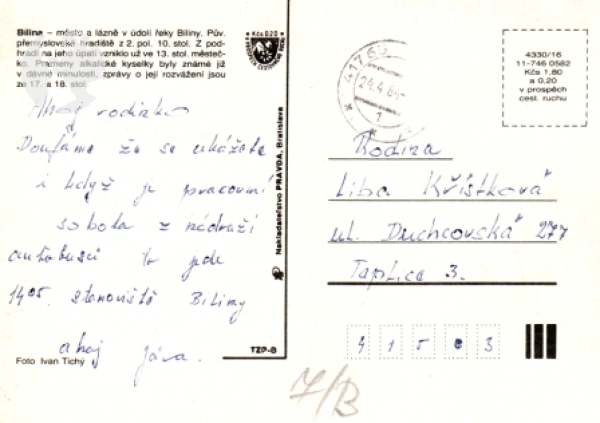 Bílina – město a lázně v údolí řeky Bíliny. Pův.
přemyslovské hradiště z 2. pol. 10. stol. Z pod-
hradí na jeho úpatí vzniklo už ve 13. st. městeč-
ko. Prameny alkalické kyselky byly známé již
v dávné minulosti, zprávy o její rozvážení jsou
ze 17. a 18. stol.
Kčs 0,20
Ahoj rodinko
Doufáme že se ukážete
i když je pracovní
sobota z nádraží
autobusů to jede
14 05. stanoviště Bíliny
ahoj Jára.
Foto Ivan Tichý
TZP-B
Nakladatelství PRAVDA, Bratislava
417 65
24.4.84
1
4330/16
11-746 0582
Kčs 1,80
a 0,20
v prospěch
cest. ruchu
Rodina
Liba Křístková
ul. Duchcovská 277
Teplice 3.
415 03
7/B